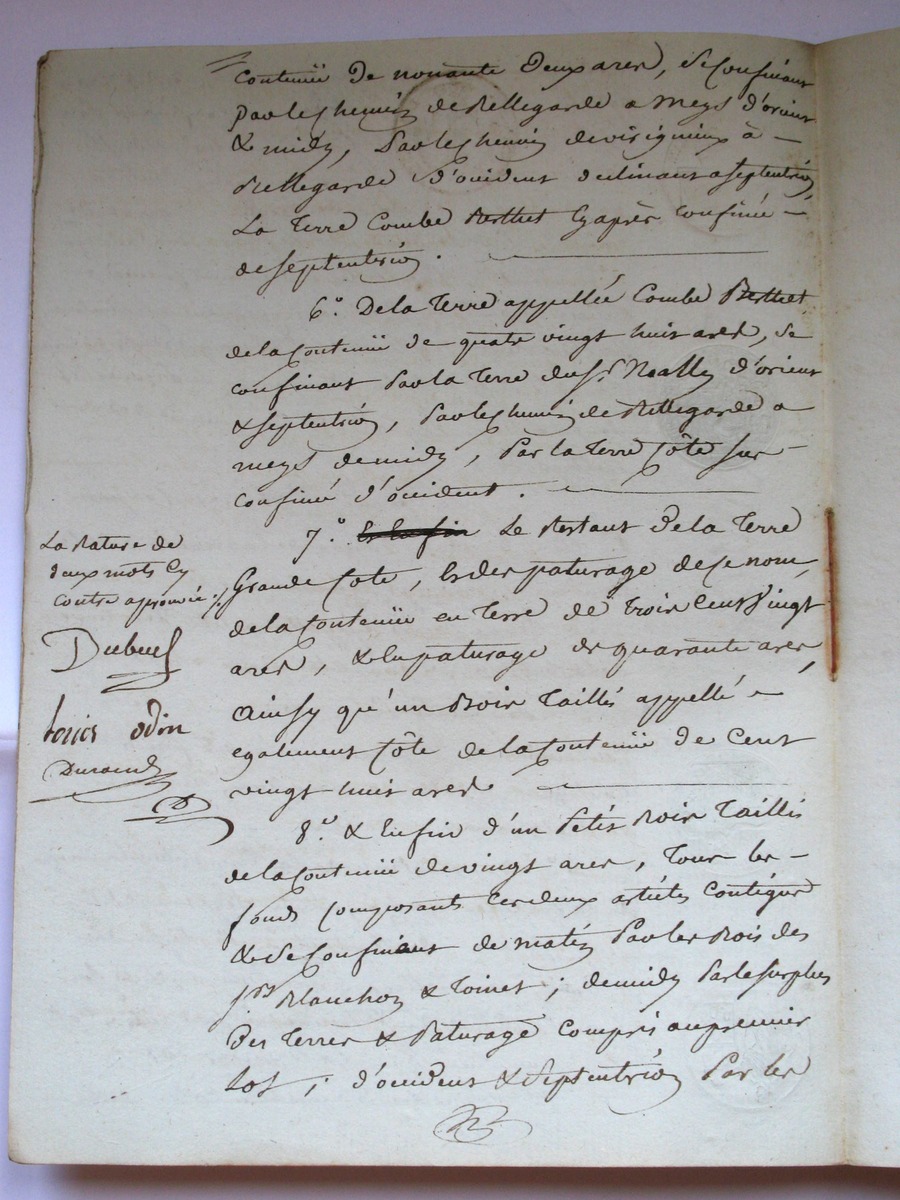 Contenüe de nonante deux ares, se Confinant
par le chemin de Bellegarde a Meys d'orient
& midy, par le chemin de virigneux à -
Bellegarde d'occident declinant a septentrion,
La terre Combe Berthet Cy après Confinée -
de septentrion .
6.° De la terre appellée Combe Berthet
de la Contenüe de quatre vingt huit ares, se
confinant par la terre du S.r Noally d'orient
& septentrion, par le chemin de Bellegarde a
meys de midy, par la terre Côte sus-
confiné d'occident .
7.° et enfin Le Restant de la terre
Grande Côte, et des paturage de ce nom,
de la Contenüe en terre de trois cent vingt
ares, & en paturage de quarante ares,
Ainsy qu'un Bois taillis appellé -
egalement Côte de la Contenüe de cent
vingt huit ares
8.° & Enfin d'un petit Bois taillis
de la Contenüe de vingt ares, tous les -
fonds composants ces deux articles contigus
& se Confinant de matin par les Bois des
S.rs Blanchon & Toinet ; de midy par le surplus
des terres & paturage compris au premier
Lot ; d'occident & septentrion par les
La Rature de
deux mots Cy
contre aprouvée ./.
Dubuet
Louis odin
Durand